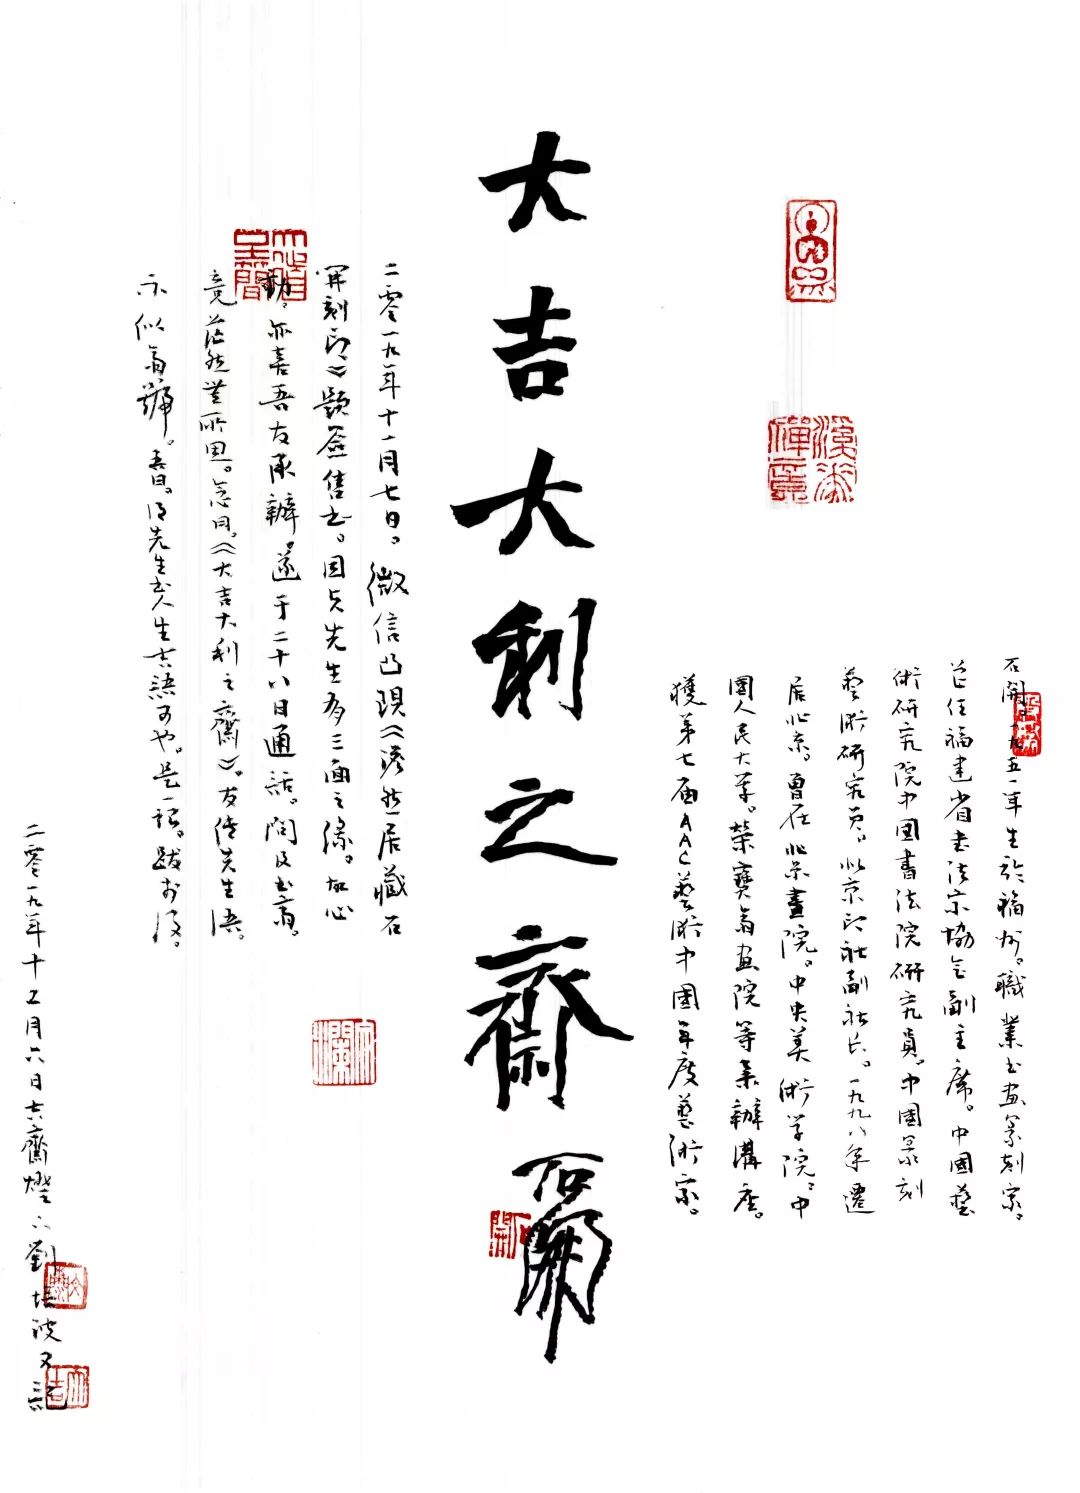 石開。一九五一年生於福州。職業书画篆刻家。
曾任福建省书法家協会副主席。中國藝
術研究院中国書法院研究員。中国篆刻
藝術研究員。北京印社副社長。一九九八年遷
居北京。曾在北京畫院。中央美術学院。中
國人民大学。榮寶斋画院等處辦講座。
獲第七届AAC藝術中國年度藝術家。
大吉大利之齋
石開
石開
二零一九年十一月七日。微信凸現《澹然居藏石
開刻印》題簽售书。因与先生多三面之緣。故心
動。亦喜吾友承辦。遂于二十八日通話。問及书斋。
竟茫然無所思。忽曰。《大吉大利之齋》。友传先生语。
不似斋號。吾曰。先生书人生吉語可也。是一。跋於后。
二零一九年十二月六日吉齋燈下劉培波又記
大吉